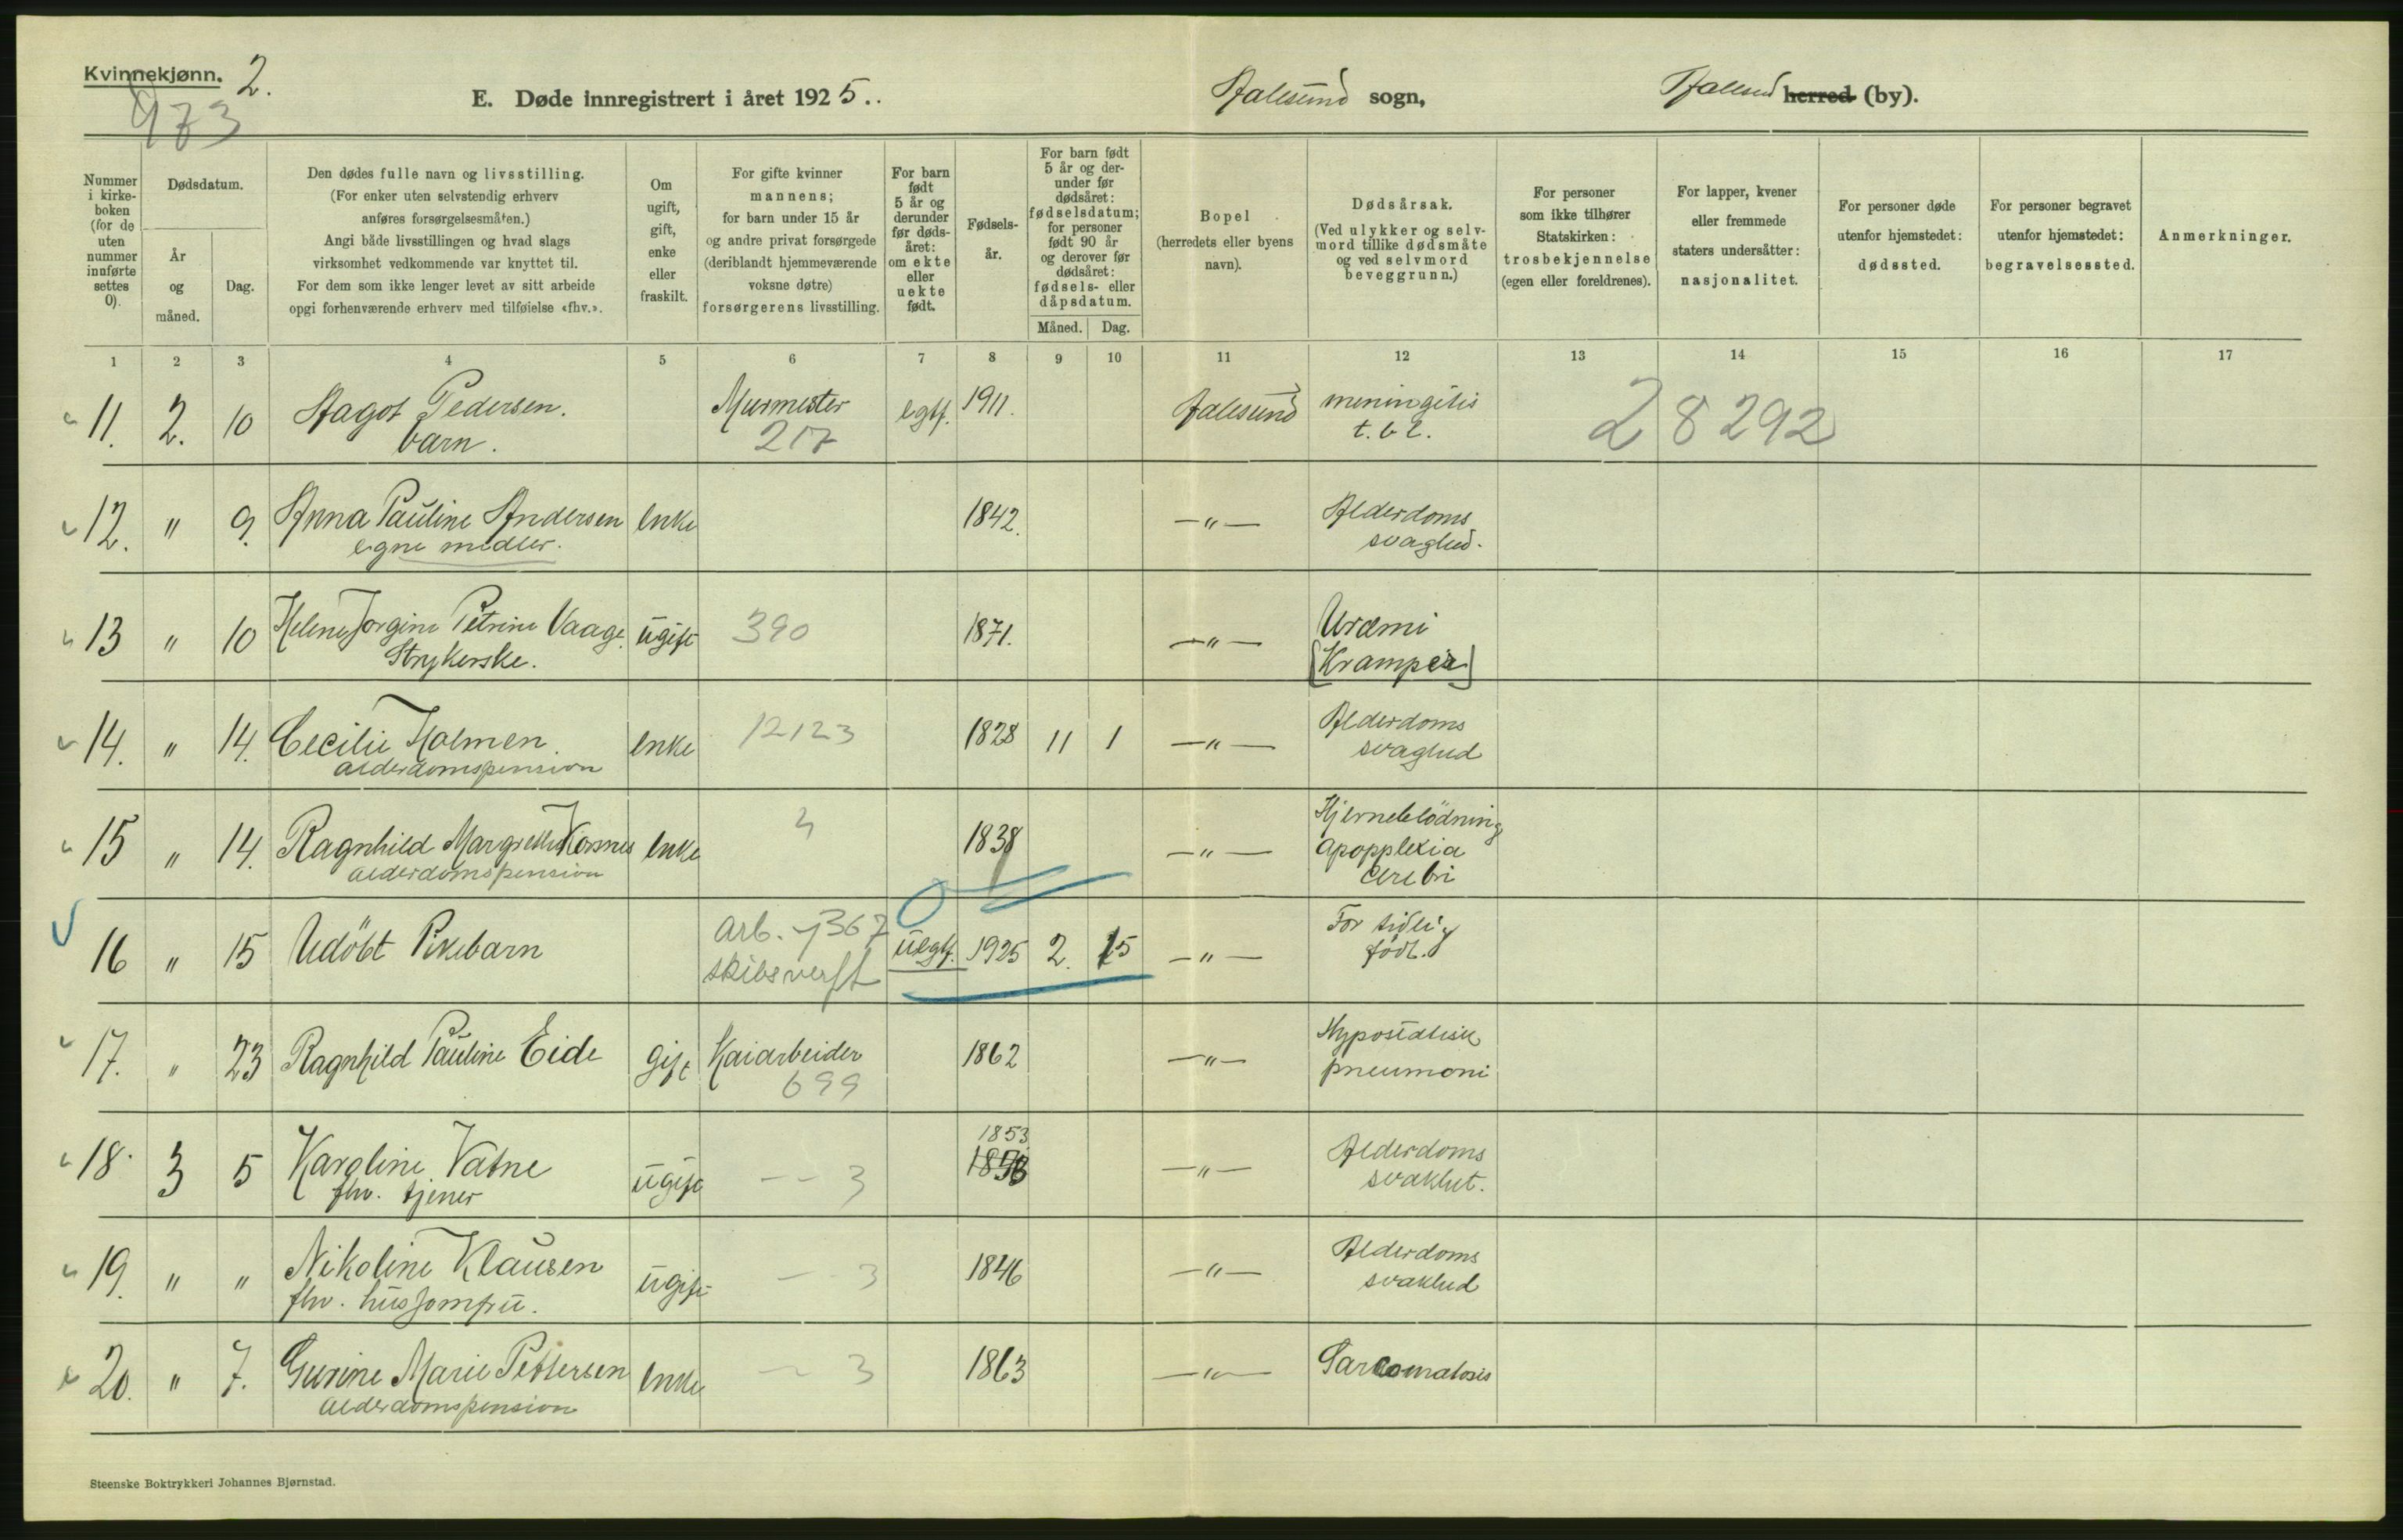 Kvinnekjønn. 2.
973
E. Døde innregistrert i året 1925..
Aalesund sogn, Aalesund herred (by).
Nummer i kirkeboken (for de uten nummer innførte settes 0).
Dødsdatum.
År og måned.
Dag.
Den dødes fulle navn og livsstilling.
(For enker uten selvstendig erhverv
anføres forsørgelsesmåten.)
Angi både livsstillingen og hvad slags
virksomhet vedkommende var knyttet til.
For dem som ikke lenger levet av sitt arbeide
opgi forhenværende erhverv med tilføielse «fhv.».
Om ugift, gift, enke eller fraskilt.
For gifte kvinner
mannens;
for barn under 15 år
og andre privat forsørgede
(deriblandt hjemmeværende
voksne døtre)
forsørgerens livsstilling.
For barn født 5 år og derunder før dødsåret: om ekte eller uekte født.
Fødselsår.
For barn født 5 år og derunder før dødsåret: fødselsdatum; for personer født 90 år og derover før dødsåret: fødsels- eller dåpsdatum.
Måned. Dag.
Bopel
(herredets eller byens
navn).
Dødsårsak.
(Ved ulykker og selvmord tillike dødsmåte
og ved selvmord
beveggrunn.)
For personer
som ikke tilhører
Statskirken:
trosbekjennelse
(egen eller foreldrenes).
For lapper, kvener
eller fremmede
staters undersåtter:
nasjonalitet.
For personer døde
utenfor hjemstedet:
dødssted.
For personer begravet
utenfor hjemstedet:
begravelsessted.
Anmerkninger.
1 2 3 4 5 6 7 8 9 10 11 12 13 14 15 16 17
11. 2. 10 Aagot Pedersen. Murmester egtf. 1911. Aalesund meningitis 28292
barn. 217 t.b.c.
12. " 9. Anna Pauline Andersen enke 1842. —"— Alderdoms
egne midler. svaghed.
13 " 10 Helene Jorgine Petrine Vaage. ugift 390 1871. —"— Uræmi
Strykerske. [Kramper]
14. " 14. Cecilie Holmen. enke 12123 1828 11 1 —"— Alderdoms
alderdomspension svaghed
15 " 14. Ragnhild Margrethe Korsnes enke 3 1838 —"— Hjerneblödning
alderdomspension Apopplexia
cerebri
16 " 15 Udöbt Pikebarn arb. 1367 uegtf. 1925 2. 15 —"— For tidlig
skibsverft født.
17. " 23 Ragnhild Pauline Eide gift Kaiarbeider 1862 —"— Hypostatisk
699 pneumoni
1853
18. 3 5 Karoline Vatne ugift —— 3 —"— Alderdoms
fhv. tjener svakhet.
19. " " Nikoline Klausen ugift —— 3 1846 —"— Alderdoms
fhv. husjomfru. svakhed
20. " 7. Gurine Marie Pettersen enke — 3 1863 —"— Sarcomatosis
alderdomspension
Steenske Boktrykkeri Johannes Bjørnstad.